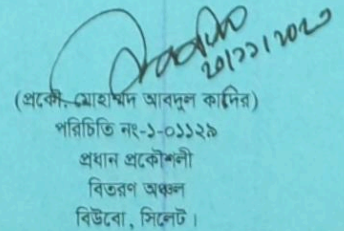 ২০/১১/২০২৩
(প্রকৌ. মোহাম্মদ আবদুল কাদির)
পরিচিতি নং-১-০১১২৯
প্রধান প্রকৌশলী
বিতরণ অঞ্চল
বিউবো, সিলেট।